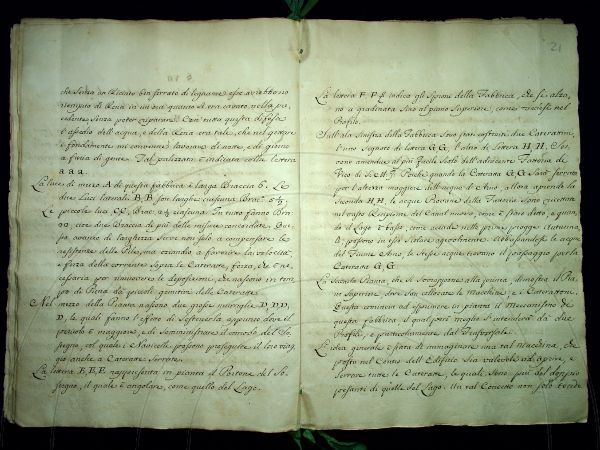 che senza un Recinto ben serrato di legname esse avrebbono
riempito di Rena in un'ora quanto si era cavato nella pre
cedente senza poter riparare. Con tutta questa difesa
l'assedio dell'acqua, e della Rena era tale, che nel gettare
i fondamenti mi convenne lavorare di notte, e di giorno
a furia di gente. Tal palizzata è indicata colle lettere
a a a.
La luce di muro A di questa fabbrica è larga Braccia 6. Le
due Luci laterali B, B son larghe ciascuna Brac.
Le piccole luci CC, Brac. 2½ ciascuna. In tutto fanno Bra.
cioè due Braccia di più delle misure concordate. Que
sto avanzo di larghezza serve non solo a compensare le
resistenze delle Pile, ma eziandio a favorire la velocità
e forza della corrente sopra le Cateratte, forza, che è ne
cessaria per rimuovere le deposizioni, che nascono in tem
po di Piena da piccoli gemitivi delle Cateratte.
Nel mezzo della Pianta nascono due grosse muraglie D, D, D,
D, le quali fanno l'effetto di Pescivola appunto dove il
pericolo è maggiore, e di somministrare il comodo del So
stegno, col quale i Navicelli possono proseguire il loro viag
gio anche a Cateratte serrate.
La lettera E, E, E rappresenta in pianta il Portone del So
stegno, il quale è angolare, come quello del Lago.
21
La lettera F F F indica gli Sproni della Fabbrica, che si alza
no a gradinata sino al piano superiore, come vedesi nel
Profilo.
Sull'ala sinistra della Fabbrica sono stati costruiti due Caterattini,
l'uno segnato di lettera G G, l'altro di lettera H, H, che ser
vono amendue al più facile scolo dell'adiacente Fattoria di
Vico di S. M. I. Poiché quando la Cateratta G, G sarà serrata
per l'altezza maggiore dell'acque d'Arno, allora aprendo la
seconda H H, le acque Piovane della Fattoria sono ricettate
nel vasto Recipiente del Canal nuovo, come è stato detto, e quan
do il Lago è basso come accade nelle prime piogge Autunna
li, possono in esso scolare agevolmente. Abbassandosi le acque
del Fiume Arno, le stesse acque trovano il passaggio per la
Cateratta G G.
La seconda Pianta, che si sovrappone alla prima dimostra il Pia
no superiore, dove son collocate le Macchine, e i Caterattoni.
Questa comincia ad esprimere in pianta il Meccanismo di
questa Fabbrica, il qual poi è meglio s'intenderà da due
Profili, e particolarmente dal Trasversale.
La idea generale è stata di immaginare una tal Macchina, che
posta nel centro dell'Edifizio sia valevole ad aprire, e
serrare tutte le Cateratte, le quali sono più del doppio
pesanti di quelle del Lago. Un tal Concetto non solo tende